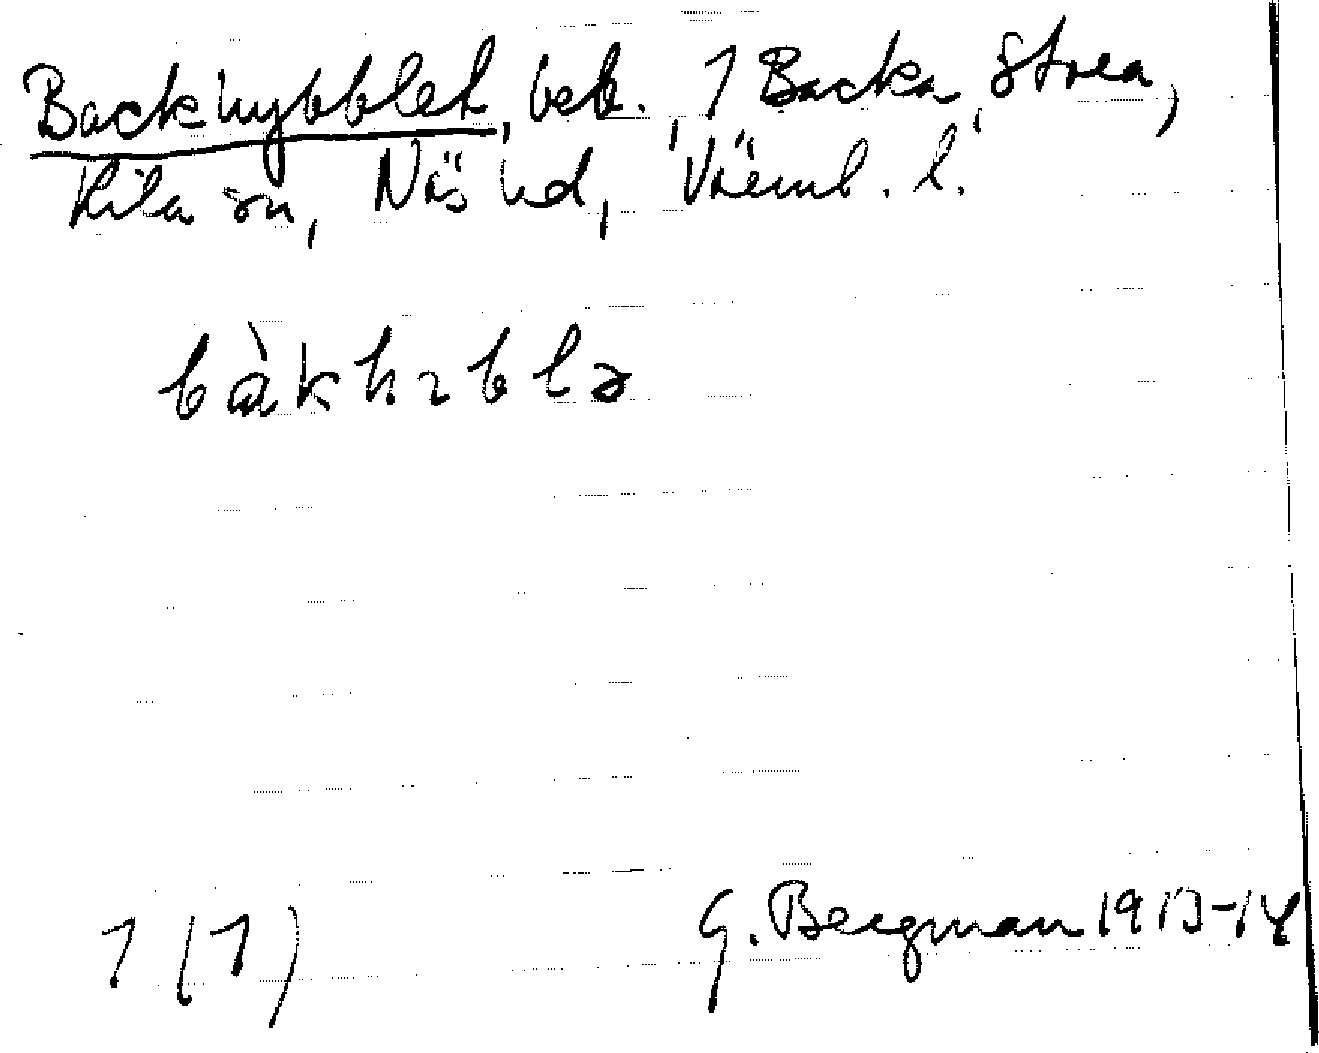 Backhybblet, beb., 1 Backa, Östra,
Kila sn, Näs hd, Värml. l.
bàkhɿblə
1 (1) G. Bergman 1913-14